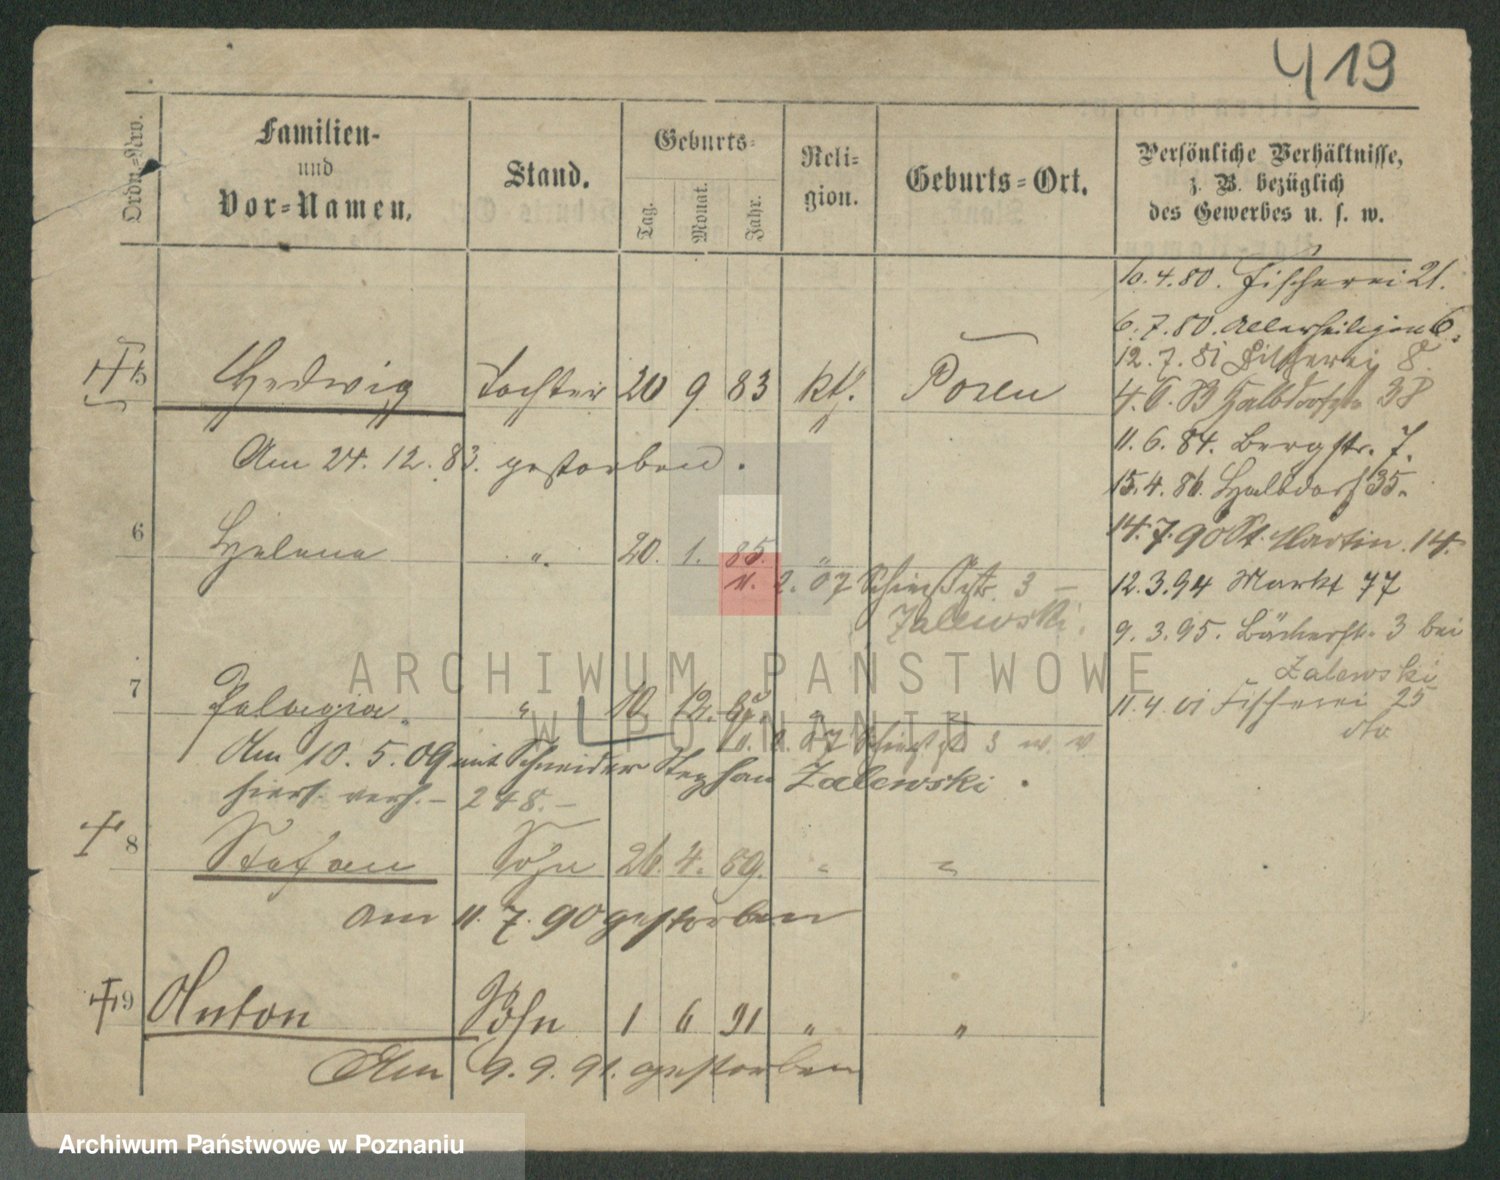 419
Ordn.=Nro.
Familien-
und
Vor=Namen.
Stand.
Geburts=
Tag.
Monat.
Jahr.
Reli=
gion.
Geburts=Ort.
Persönliche Verhältnisse,
z. B. bezüglich
des Gewerbes u. s. w.
10.4.80. Fischerei 21.
6.7.80. Allerheiligen 6.
12.7.81 Fischerei 8.
4.6.83 Halbdorfstr 38
11.6.84. Bergstr. 7.
15.4.86. Halbdorf 35.
14.7.90 St. Martin 14.
12.3.94 Markt 77
9.3.95. Bäckerstr. 3 bei
Zalewski
11.4.01 Fischerei 25
5 Hedwig Tochter 20 9 83 kth. Posen
Am 24.12.83. gestorben.
6 Helena " 20. 1. 85. "
11. 2. 07 Schießstr. 3 —
Zalewski.
7 Pelagia " 10. 12. "
07 Schießstr 3
Am 10.5.09 mit Schneider Stephan Zalewski.
hier verh. – 248. –
8 Stefan Sohn 26. 4. 89. " "
am 11.7.90 gestorben
9 Anton Sohn 1 6 91 " "
Am 9.9.91. gestorben
ARCHIWUM PAŃSTWOWE
W POZNANIU
Archiwum Państwowe w Poznaniu